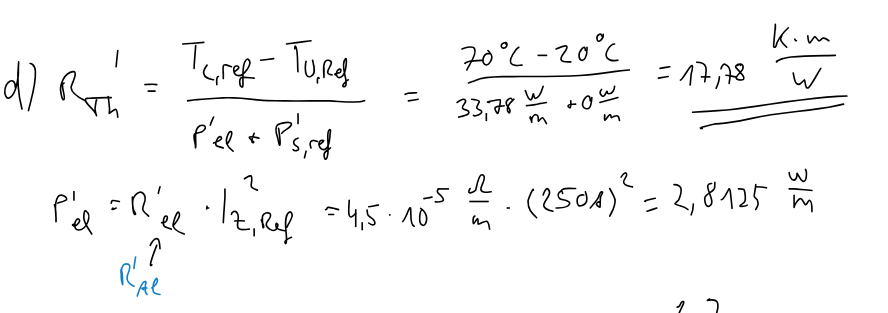 d) R_Th' = (T_L,ref - T_U,Ref) / (P'el + P's,ref) = (70°C - 20°C) / (33,78 W/m + 0 W/m) = 17,78 K·m/W
P'el = R'el · I²_Z,Ref = 4,5 · 10^-5 Ω/m · (250A)² = 2,8125 W/m
R'Al